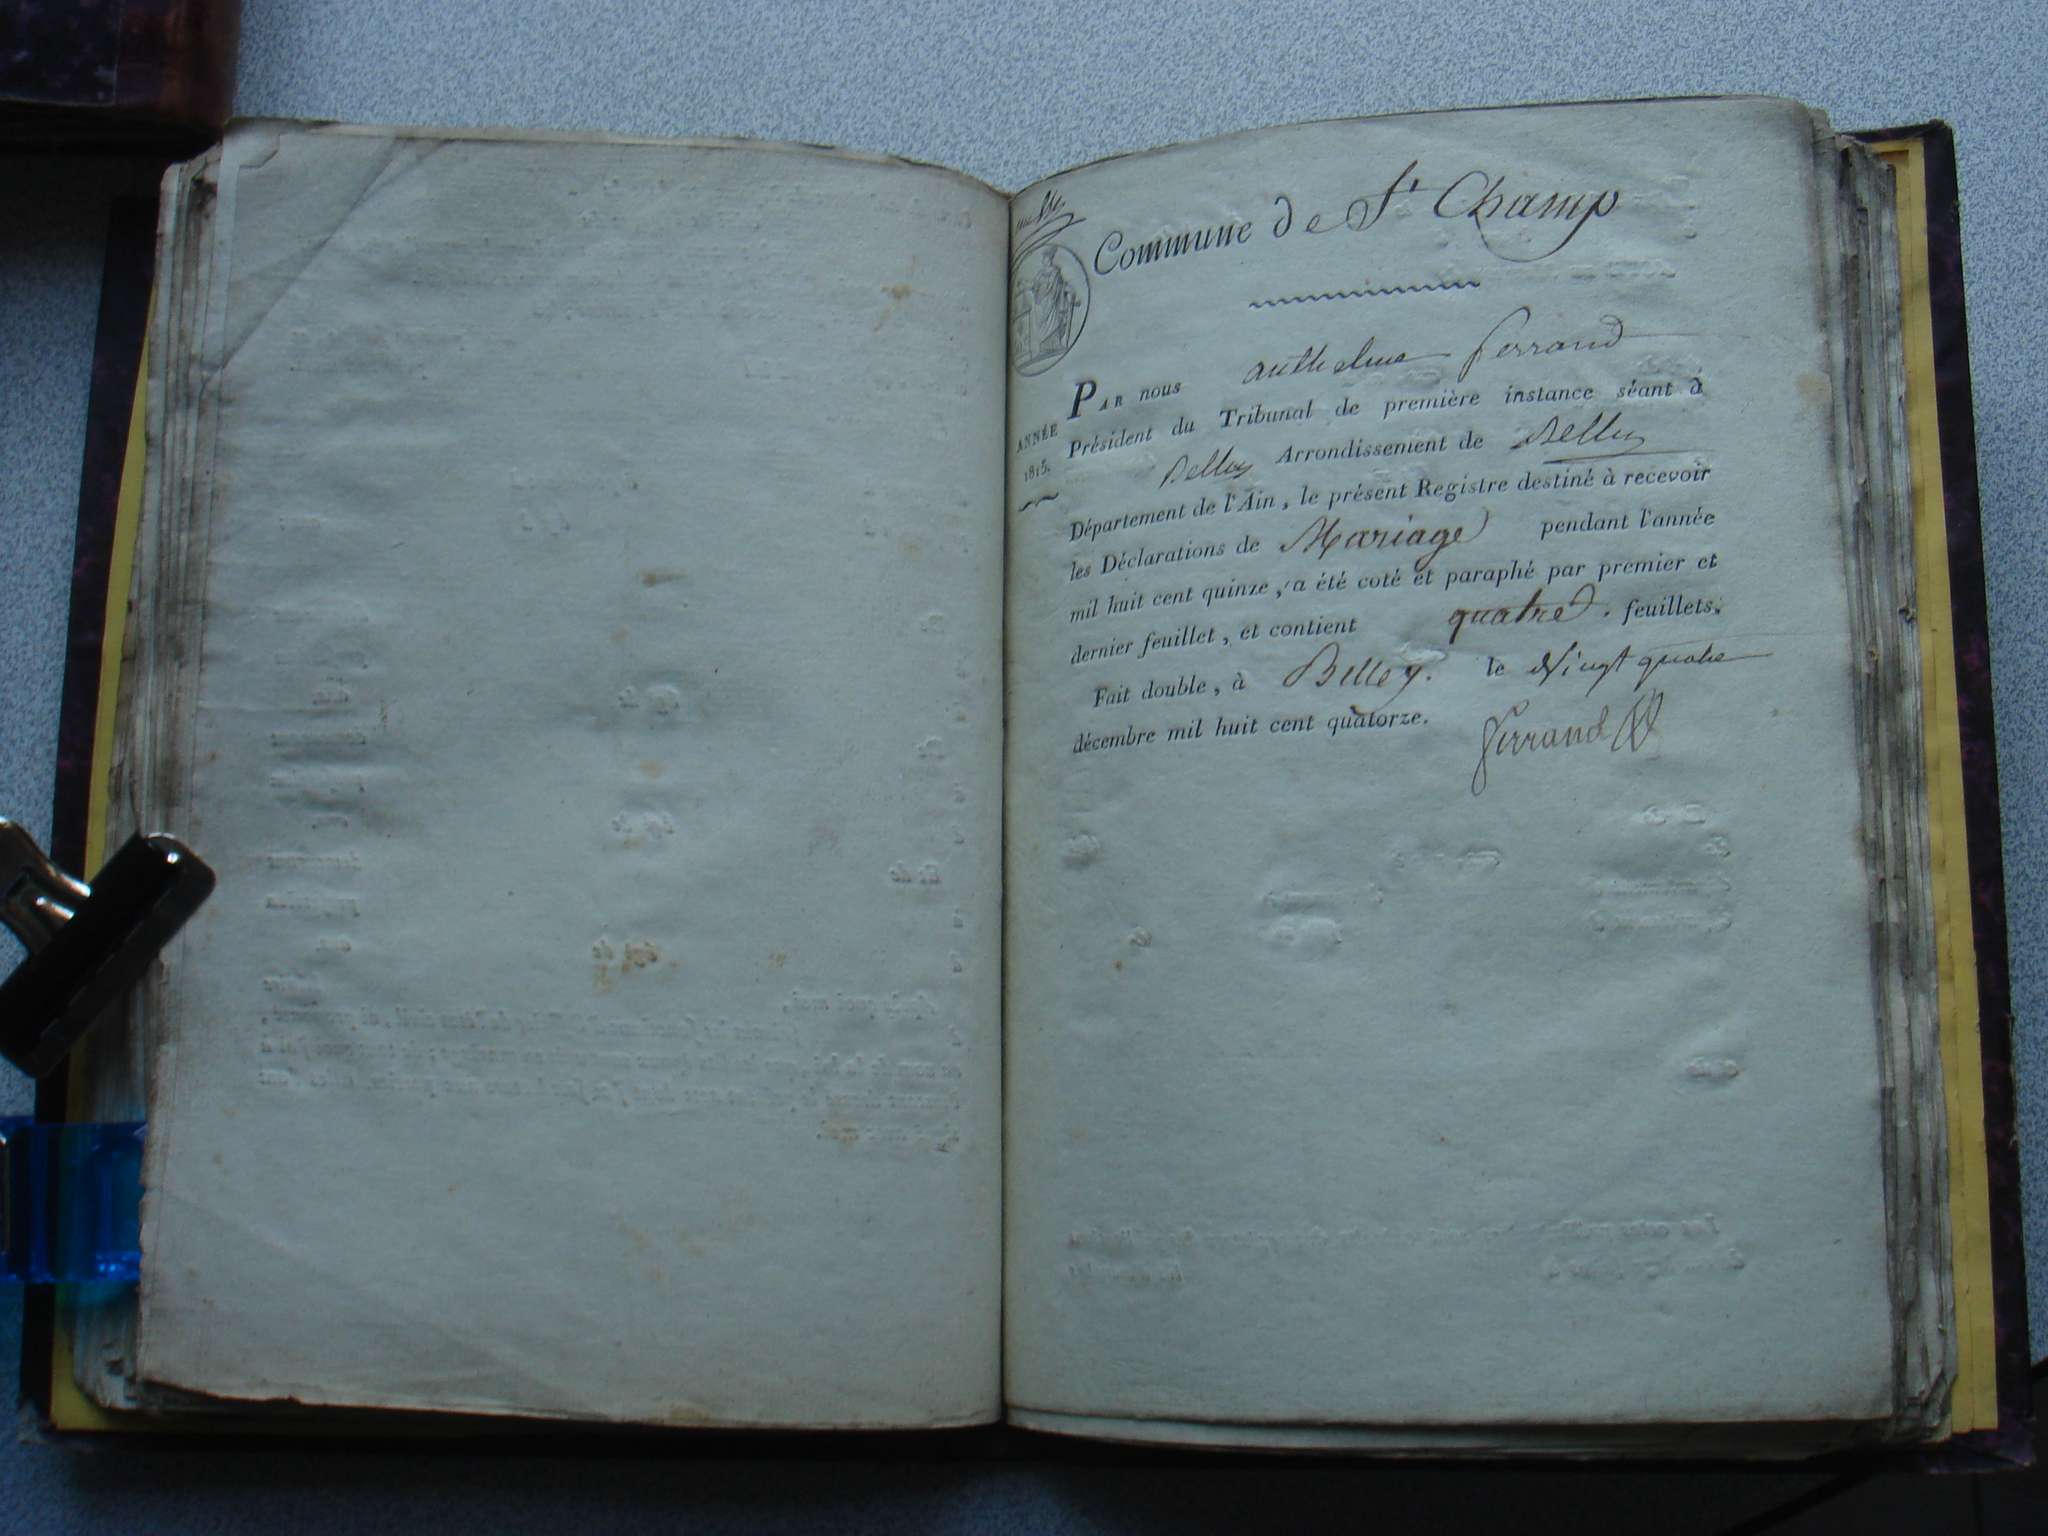 Commune de St Champ
ANNÉE
1815.
PAR nous anthelme ferrand
Président du Tribunal de première instance séant à
Belley Arrondissement de Belley
Département de l'Ain, le présent Registre destiné à recevoir
les Déclarations de Mariage pendant l'année
mil huit cent quinze, a été coté et paraphé par premier et
dernier feuillet, et contient quatre feuillets.
Fait double, à Belley. le Vingt quatre
décembre mil huit cent quatorze.
ferrand